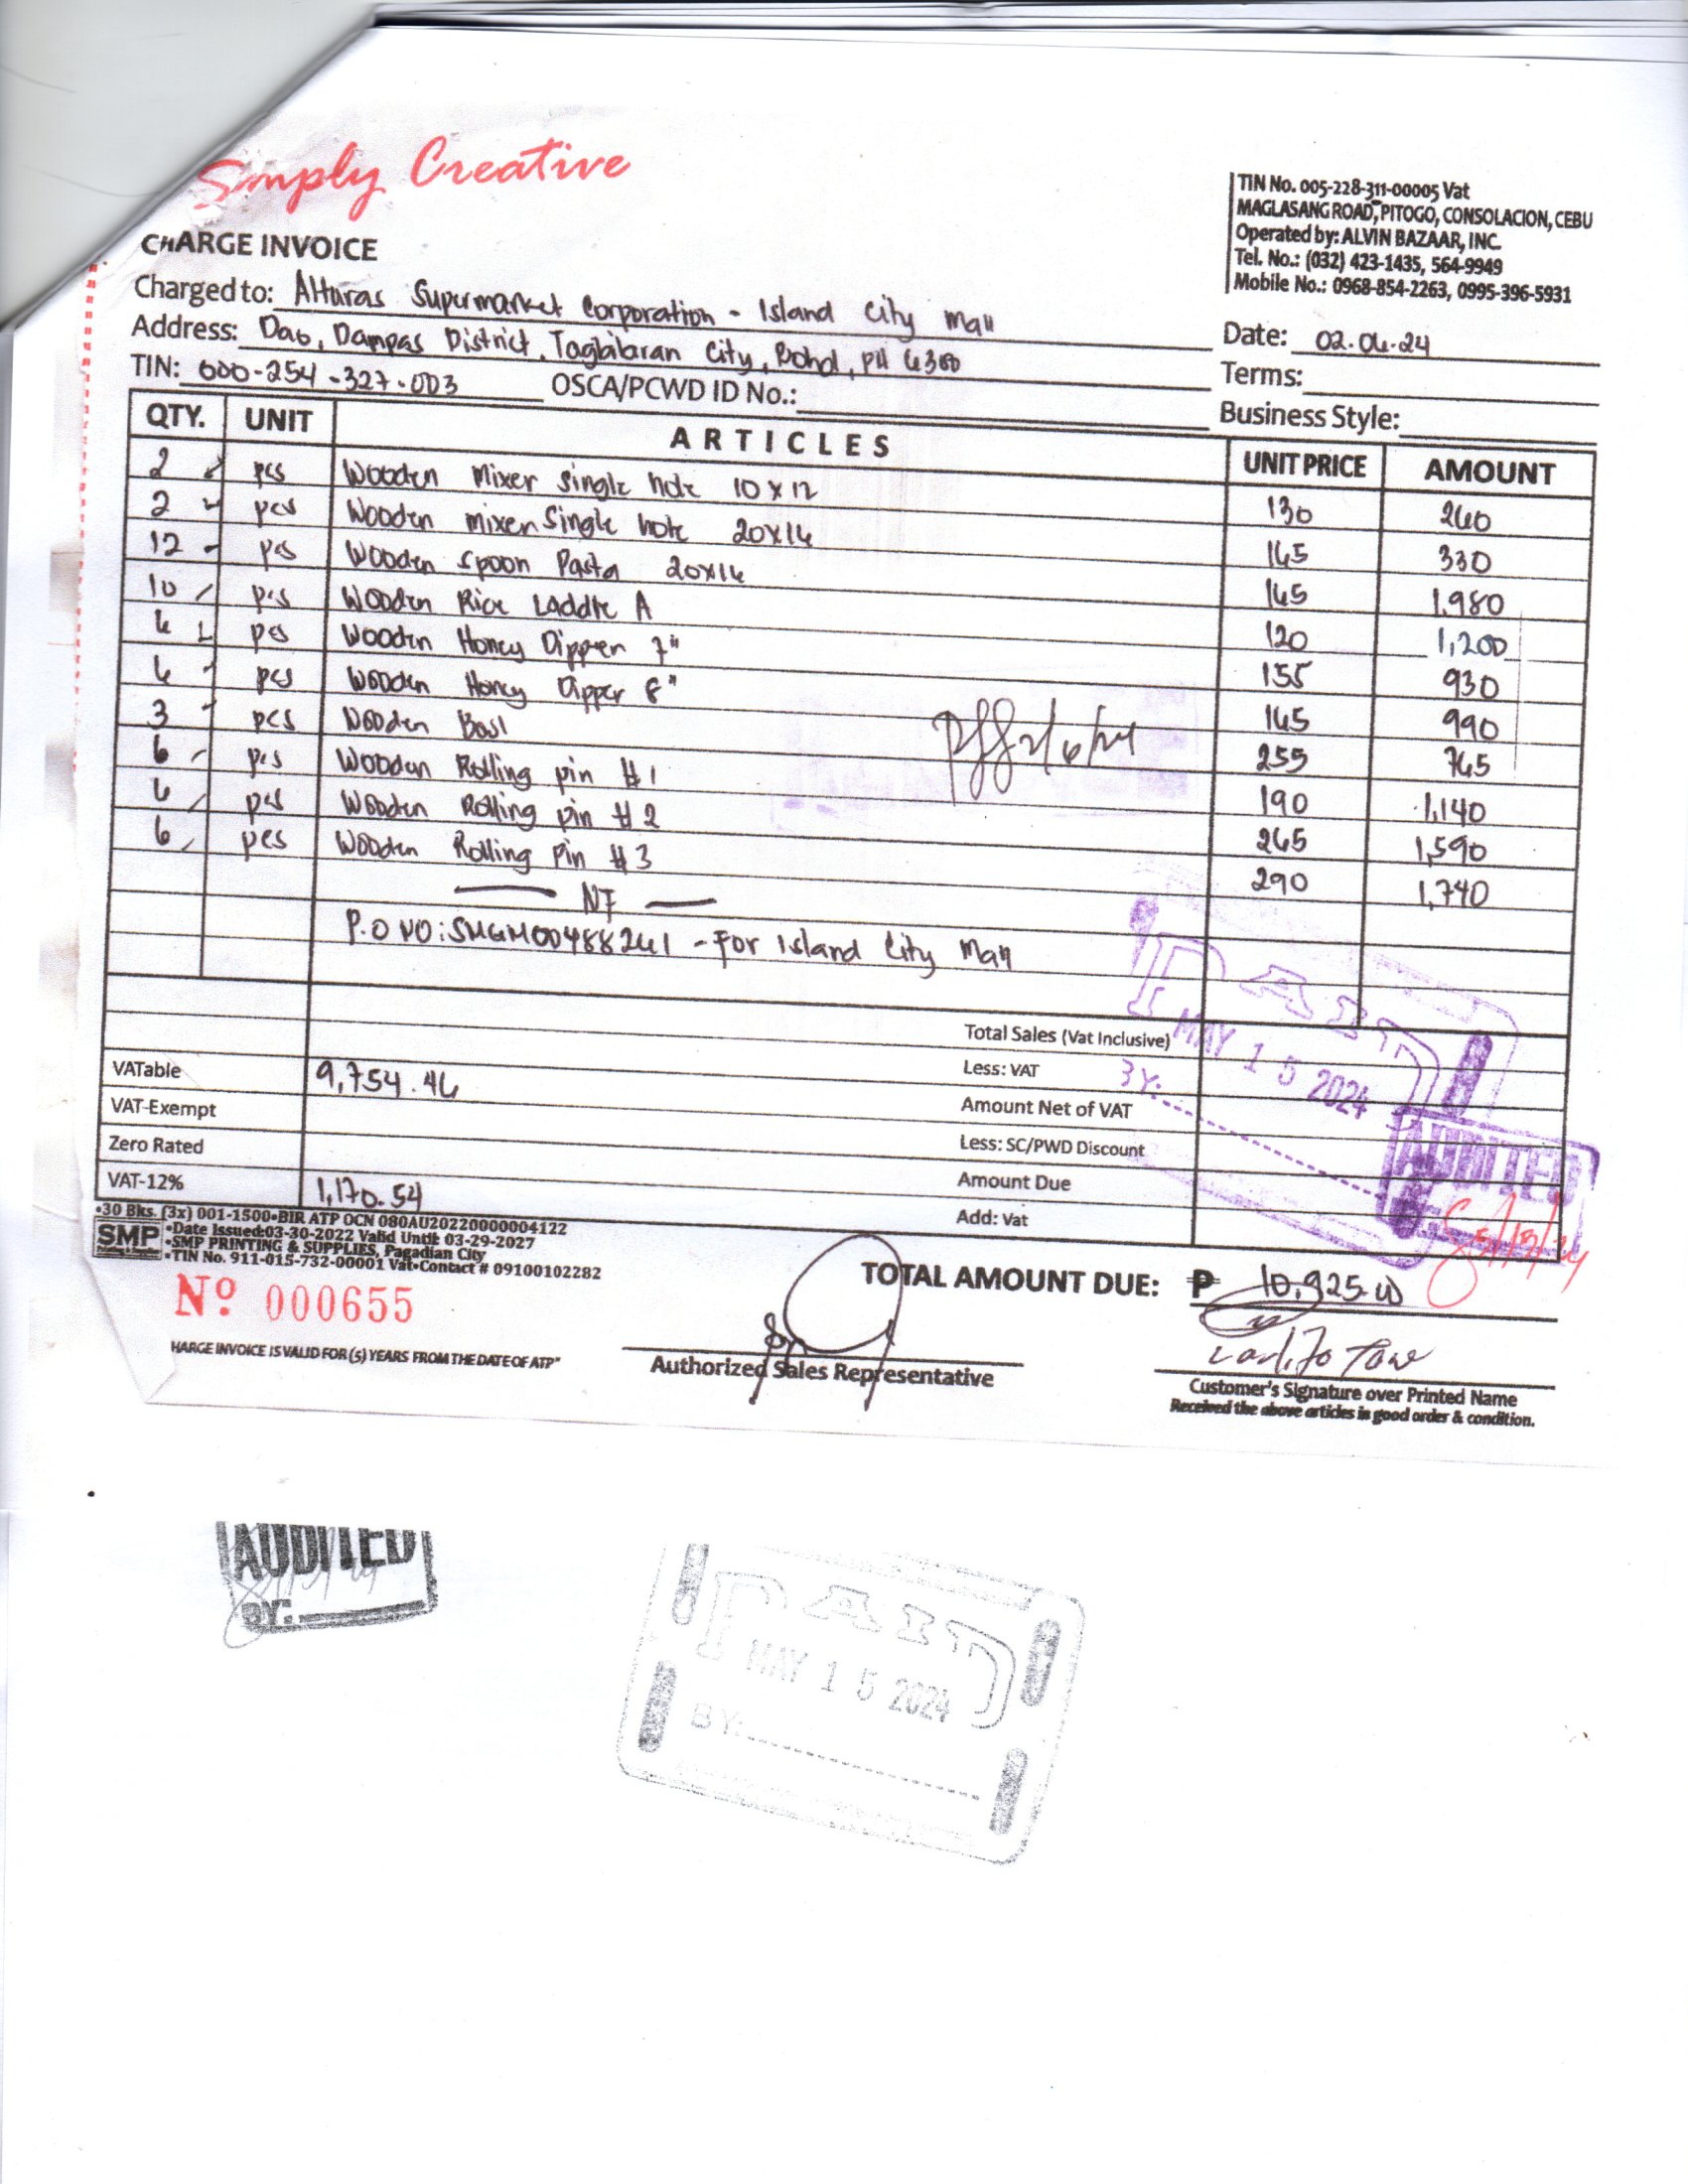 Simply Creative
TIN No. 005-228-311-00005 Vat
MAGLASANG ROAD, PITOGO, CONSOLACION, CEBU
Operated by: ALVIN BAZAAR, INC.
Tel. No.: (032) 423-1435, 564-9949
Mobile No.: 0968-854-2263, 0995-396-5931
CHARGE INVOICE
Charged to: Alturas Supermarket Corporation - Island City Mall
Address: Dao, Dampas District, Tagbilaran City, Bohol, PH 6300
Date: 02.06.24
TIN: 000-254-327-003 OSCA/PCWD ID No.:
Terms:
Business Style:
QTY. UNIT ARTICLES UNIT PRICE AMOUNT
2 pcs Wooden Mixer Single hole 10x12 130 260
2 pcs Wooden mixer Single hole 20x16 165 330
12 pcs Wooden Spoon Pasta 20x16 165 1,980
10 pcs Wooden Rice Laddle A 120 1,200
6 pcs Wooden Honey Dipper 7" 155 930
6 pcs Wooden Honey Dipper 8" 165 990
3 pcs Wooden Bowl 255 765
6 pcs Wooden Rolling pin #1 190 1,140
6 pcs Wooden Rolling pin #2 265 1,590
6 pcs Wooden Rolling Pin #3 290 1,740
2/6/24
— NF —
P.O NO: SMGM00488261 - For Island City Mall
PAID
MAY 15 2024
BY:
Total Sales (Vat Inclusive)
VATable 9,754.46 Less: VAT
VAT-Exempt Amount Net of VAT
Zero Rated Less: SC/PWD Discount
VAT-12% 1,170.54 Amount Due
Add: Vat
AUDITED
5/13/24
•30 Bks. (3x) 001-1500•BIR ATP OCN 080AU20220000004122
•Date Issued:03-30-2022 Valid Until: 03-29-2027
SMP
Printing & Supplies
•SMP PRINTING & SUPPLIES, Pagadian City
•TIN No. 911-015-732-00001 Vat•Contact # 09100102282
TOTAL AMOUNT DUE: ₱ 10,925.00
Nº 000655
HARGE INVOICE IS VALID FOR (5) YEARS FROM THE DATE OF ATP"
Authorized Sales Representative
Customer's Signature over Printed Name
Received the above articles in good order & condition.
AUDITED
BY:
PAID
MAY 15 2024
BY: